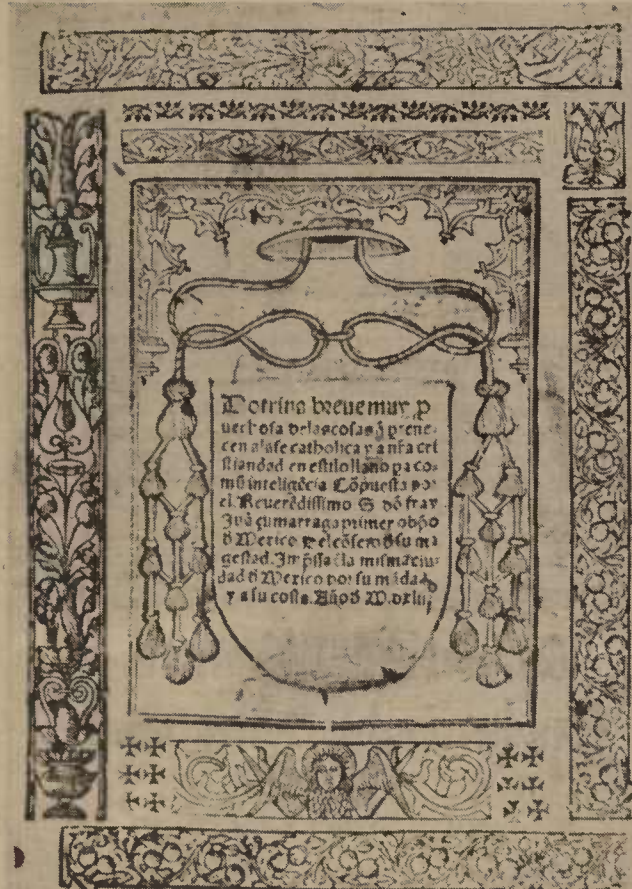 Dotrina breue muy p
uechosa delas cosas q̃ ptene-
cen ala fe catholica y a nr̃a cri
stiandad en estilo llano pa co-
mũ inteligẽcia. Cõpuesta por
el Reuerẽdissimo S. dõ fray
Juã çumarraga primer obp̃o
d̃ Mexico del cõsejo d̃ su ma
gestad. Imp̃ssa ẽla misma ciu-
dad d̃ Mexico por su mãdado
y a su costa. Año d̃ M.dxliij